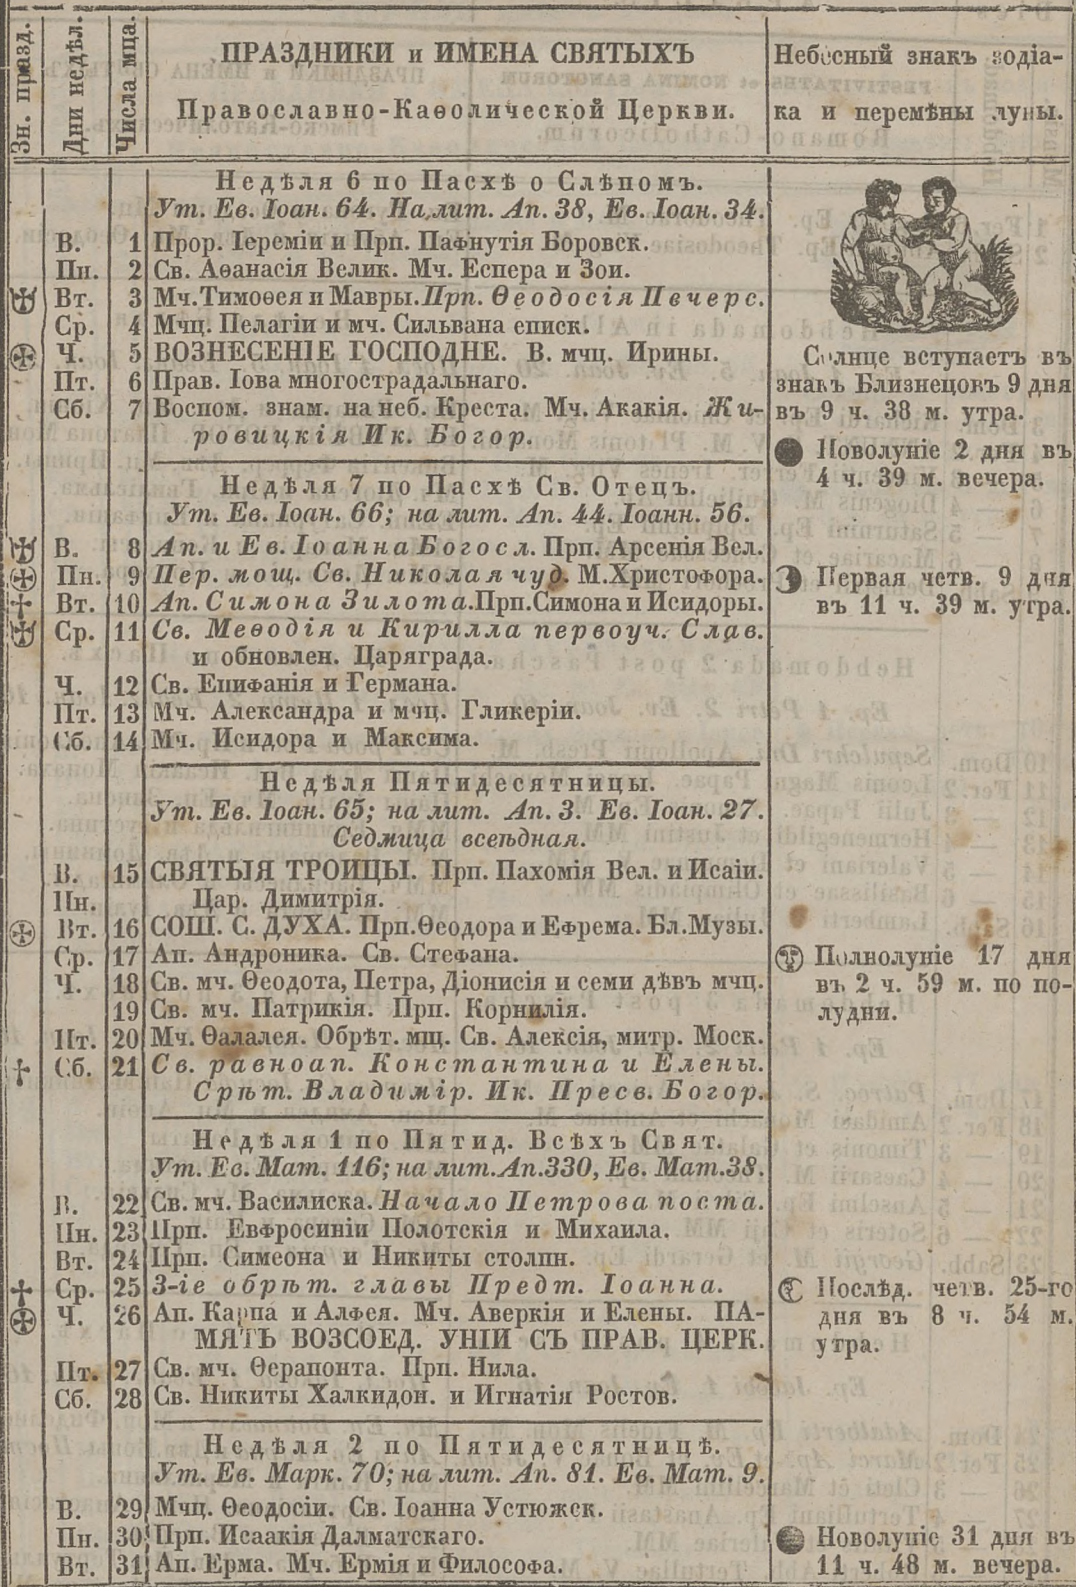 Зн. празд.
Дни недѣл.
Числа мца.
ПРАЗДНИКИ и ИМЕНА СВЯТЫХЪ
Православно-Каѳолической Церкви.
Небесный знакъ зодіа-
ка и перемѣны луны.
Недѣля 6 по Пасхѣ о Слѣпомъ.
Ут. Ев. Іоан. 64. На лит. Ап. 38, Ев. Іоан. 34.
В. 1 Прор. Іереміи и Прп. Пафнутія Боровск.
Пн. 2 Св. Аѳанасія Велик. Мч. Еспера и Зои.
Вт. 3 Мч. Тимоѳея и Мавры. Прп. Ѳеодосія Печерс.
Ср. 4 Мчц. Пелагіи и мч. Сильвана еписк.
Ч. 5 ВОЗНЕСЕНІЕ ГОСПОДНЕ. В. мчц. Ирины.
Пт. 6 Прав. Іова многострадальнаго.
Сб. 7 Воспом. знам. на неб. Креста. Мч. Акакія. Жи-
ровицкія Ик. Богор.
Солнце вступаетъ въ
знакъ Близнецовъ 9 дня
въ 9 ч. 38 м. утра.
Новолуніе 2 дня въ
4 ч. 39 м. вечера.
Недѣля 7 по Пасхѣ Св. Отецъ.
Ут. Ев. Іоан. 66; на лит. Ап. 44. Іоанн. 56.
В. 8 Ап. и Ев. Іоанна Богосл. Прп. Арсенія Вел.
Пн. 9 Пер. мощ. Св. Николая чуд. М. Христофора.
Вт. 10 Ап. Симона Зилота. Прп. Симона и Исидоры.
Ср. 11 Св. Меѳодія и Кирилла первоуч. Слав.
и обновлен. Царяграда.
Ч. 12 Св. Епифанія и Германа.
Пт. 13 Мч. Александра и мчц. Гликеріи.
Сб. 14 Мч. Исидора и Максима.
Первая четв. 9 дня
въ 11 ч. 39 м. утра.
Недѣля Пятидесятницы.
Ут. Ев. Іоан. 65; на лит. Ап. 3. Ев. Іоан. 27.
Седмица всеѣдная.
В. 15 СВЯТЫЯ ТРОИЦЫ. Прп. Пахомія Вел. и Исаіи.
Пн. Цар. Димитрія.
Вт. 16 СОШ. С. ДУХА. Прп. Ѳеодора и Ефрема. Бл. Музы.
Ср. 17 Ап. Андроника. Св. Стефана.
Ч. 18 Св. мч. Ѳеодота, Петра, Діонисія и семи дѣвъ мчц.
19 Св. мч. Патрикія. Прп. Корнилія.
Пт. 20 Мч. Ѳалалея. Обрѣт. мщ. Св. Алексія, митр. Моск.
Сб. 21 Св. равноап. Константина и Елены.
Срѣт. Владимір. Ик. Пресв. Богор.
Полнолуніе 17 дня
въ 2 ч. 59 м. по по-
лудни.
Недѣля 1 по Пятид. Всѣхъ Свят.
Ут. Ев. Мат. 116; на лит. Ап. 330, Ев. Мат. 38.
В. 22 Св. мч. Василиска. Начало Петрова поста.
Пн. 23 Прп. Евфросиніи Полотскія и Михаила.
Вт. 24 Прп. Симеона и Никиты столпн.
Ср. 25 3-іе обрѣт. главы Предт. Іоанна.
Ч. 26 Ап. Карпа и Алфея. Мч. Аверкія и Елены. ПА-
МЯТЬ ВОЗСОЕД. УНІИ СЪ ПРАВ. ЦЕРК.
Пт. 27 Св. мч. Ѳерапонта. Прп. Нила.
Сб. 28 Св. Никиты Халкидон. и Игнатія Ростов.
Послѣд. четв. 25-го
дня въ 8 ч. 54 м.
утра.
Недѣля 2 по Пятидесятницѣ.
Ут. Ев. Марк. 70; на лит. Ап. 81. Ев. Мат. 9.
В. 29 Мчц. Ѳеодосіи. Св. Іоанна Устюжск.
Пн. 30 Прп. Исаакія Далматскаго.
Вт. 31 Ап. Ерма. Мч. Ермія и Философа.
Новолуніе 31 дня въ
11 ч. 48 м. вечера.